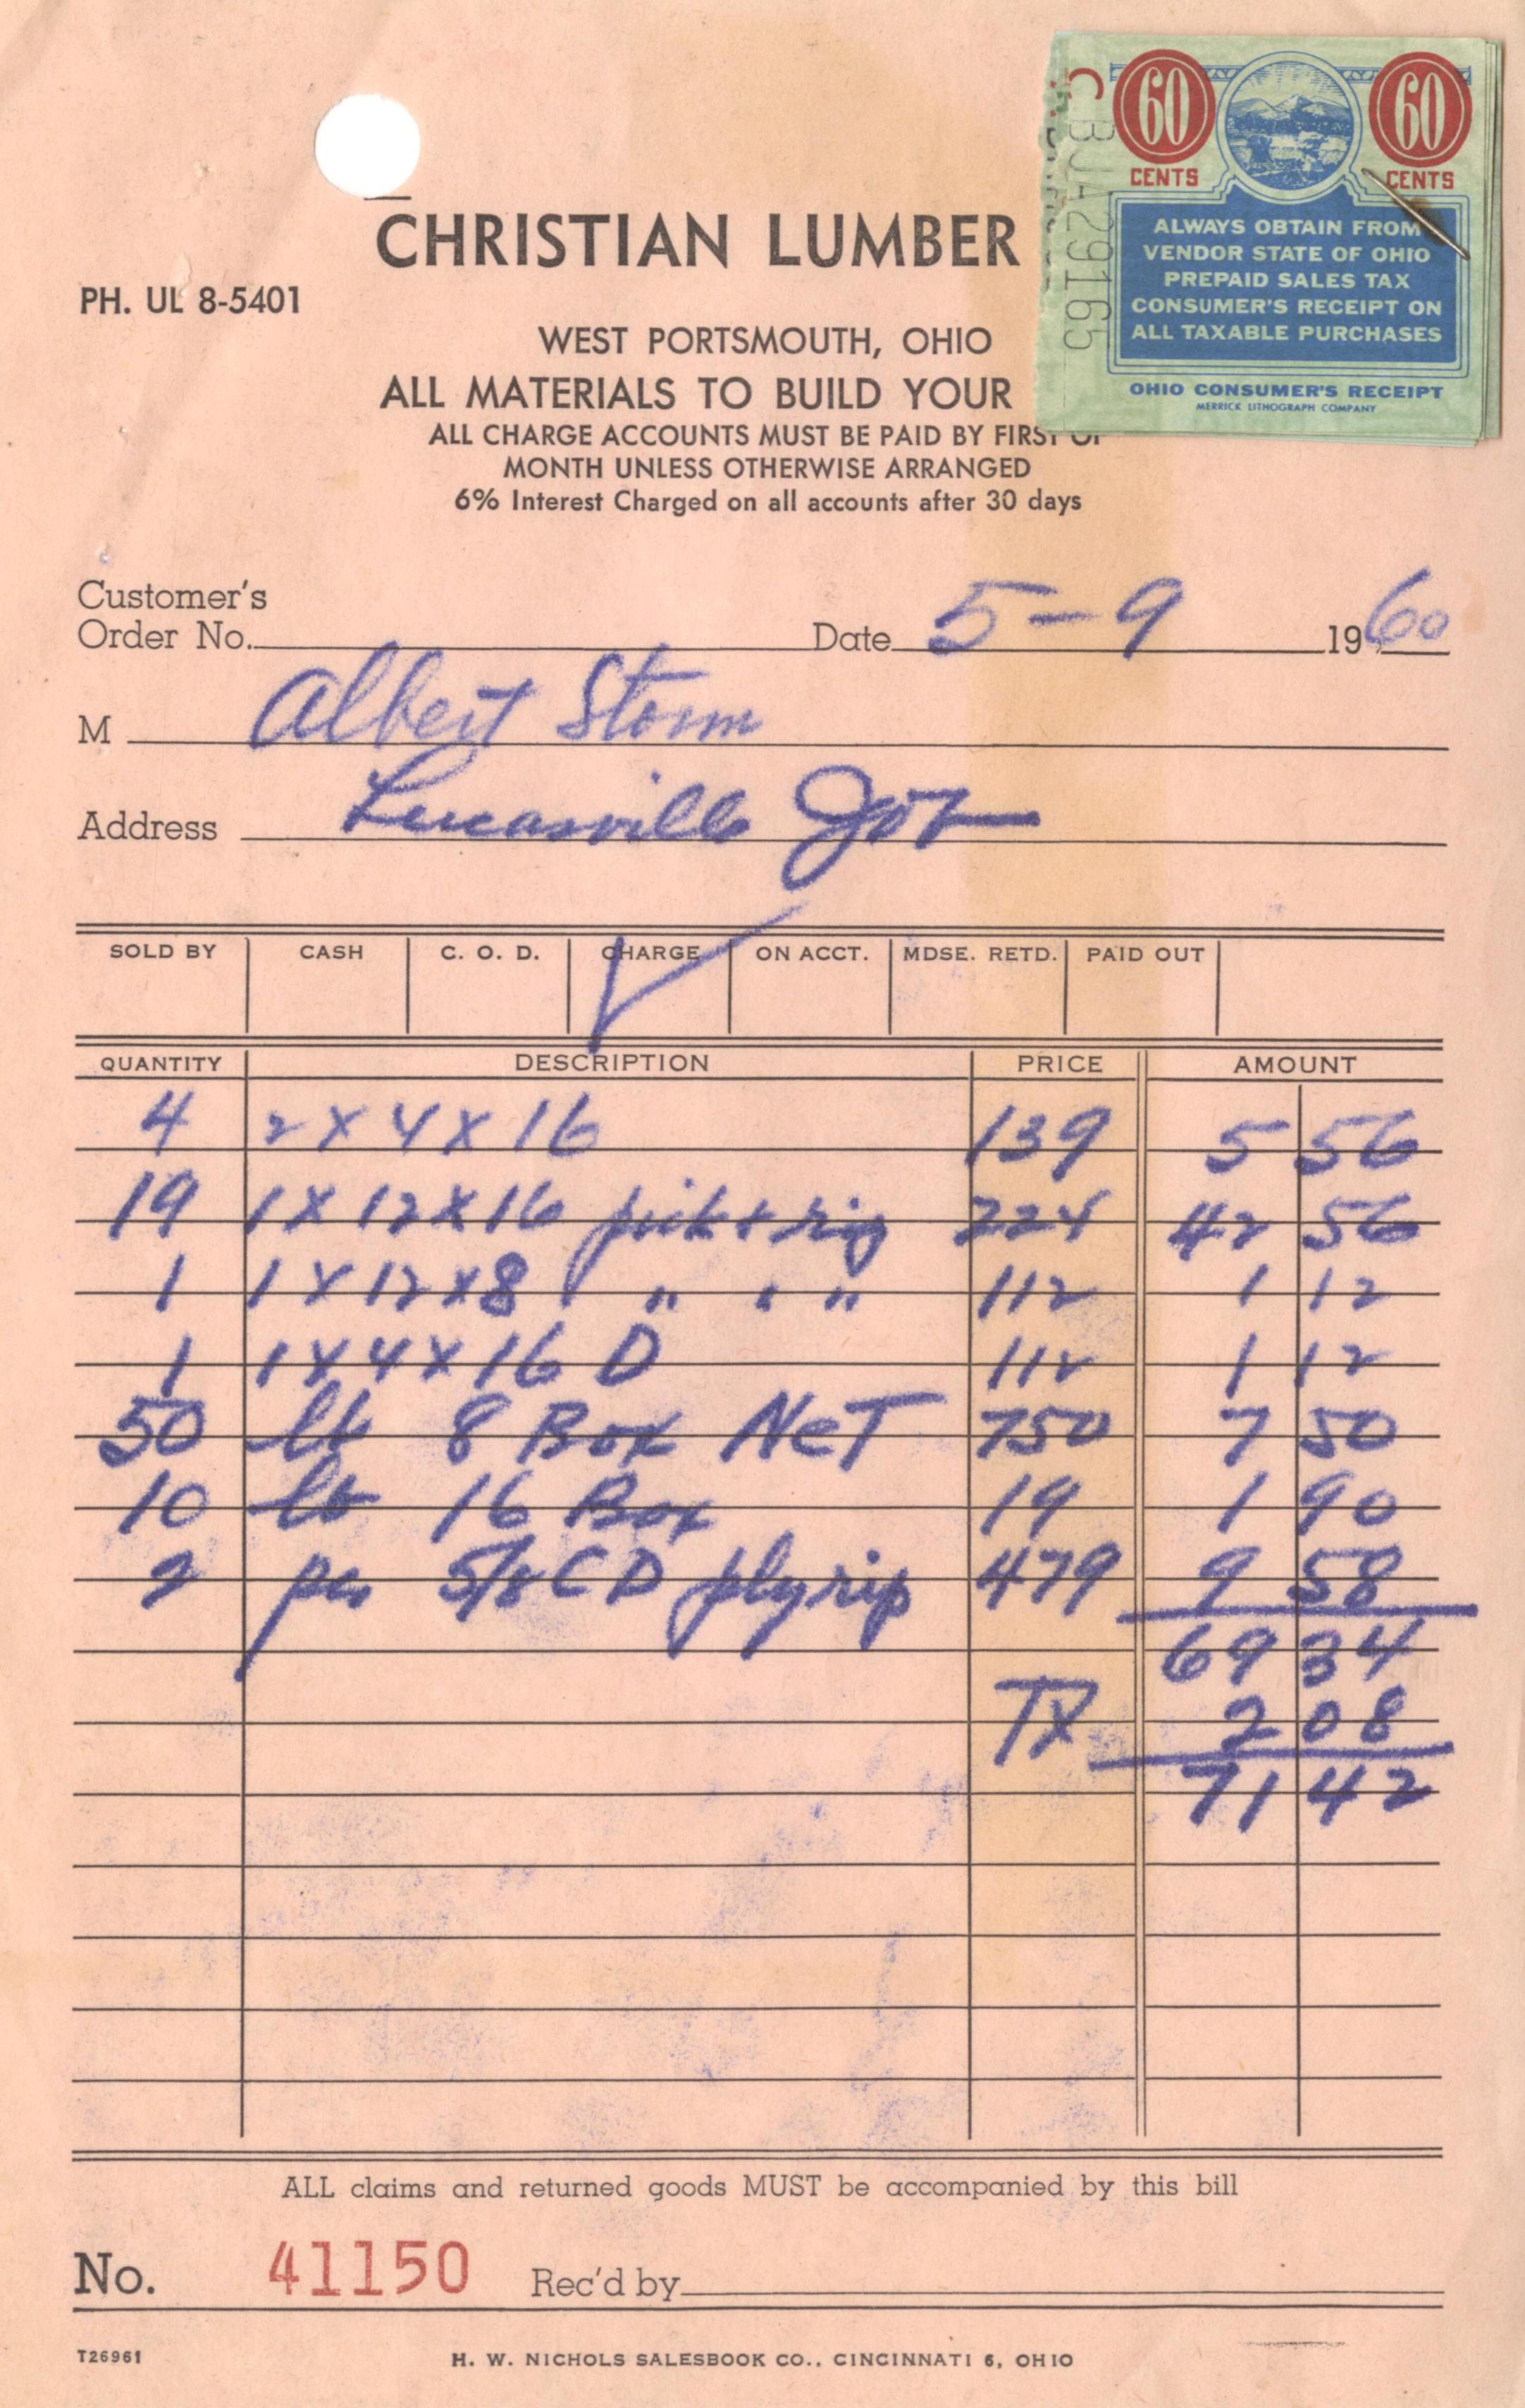 CHRISTIAN LUMBER
PH. UL 8-5401
WEST PORTSMOUTH, OHIO
ALL MATERIALS TO BUILD YOUR
ALL CHARGE ACCOUNTS MUST BE PAID BY FIRST OF
MONTH UNLESS OTHERWISE ARRANGED
6% Interest Charged on all accounts after 30 days
60 60
CENTS CENTS
C BJA29165
ALWAYS OBTAIN FROM
VENDOR STATE OF OHIO
PREPAID SALES TAX
CONSUMER'S RECEIPT ON
ALL TAXABLE PURCHASES
OHIO CONSUMER'S RECEIPT
MERRICK LITHOGRAPH COMPANY
Customer's
Order No. Date 5-9 1960
M Albert Storm
Address Lucasville Job
SOLD BY CASH C. O. D. CHARGE ON ACCT. MDSE. RETD. PAID OUT
QUANTITY DESCRIPTION PRICE AMOUNT
4 2 X 4 X 16 139 5 56
19 1 X 12 X 16 pick + rig 224 42 56
1 1 X 12 X 8 " " " 112 1 12
1 1 X 4 X 16 D 112 1 12
50 lb 8 Box NeT 750 7 50
10 lb 16 Box 19 1 90
2 pcs 5/8 CD plyrip 479 9 58
69 34
TX 2 08
71 42
ALL claims and returned goods MUST be accompanied by this bill
No. 41150 Rec'd by
T26961 H. W. NICHOLS SALESBOOK CO., CINCINNATI 6, OHIO